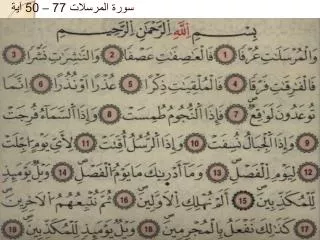 سورة المرسلات 77 – 50 آية
بِسْمِ اللَّهِ الرَّحْمَٰنِ الرَّحِيمِ
وَالْمُرْسَلَٰتِ عُرْفًا 1 فَالْعَٰصِفَٰتِ عَصْفًا 2 وَالنَّٰشِرَٰتِ نَشْرًا 3
فَالْفَٰرِقَٰتِ فَرْقًا 4 فَالْمُلْقِيَٰتِ ذِكْرًا 5 عُذْرًا أَوْ نُذْرًا 6 إِنَّمَا
تُوعَدُونَ لَوَٰقِعٌ 7 فَإِذَا النُّجُومُ طُمِسَتْ 8 وَإِذَا السَّمَآءُ فُرِجَتْ
9 وَإِذَا الْجِبَالُ نُسِفَتْ 10 وَإِذَا الرُّسُلُ أُقِّتَتْ 11 لِأَيِّ يَوْمٍ أُجِّلَتْ
12 لِيَوْمِ الْفَصْلِ 13 وَمَآ أَدْرَىٰكَ مَا يَوْمُ الْفَصْلِ 14 وَيْلٌ يَوْمَئِذٍ
لِّلْمُكَذِّبِينَ 15 أَلَمْ نُهْلِكِ الْأَوَّلِينَ 16 ثُمَّ نُتْبِعُهُمُ الْآخِرِينَ
17 كَذَٰلِكَ نَفْعَلُ بِالْمُجْرِمِينَ 18 وَيْلٌ يَوْمَئِذٍ لِّلْمُكَذِّبِينَ